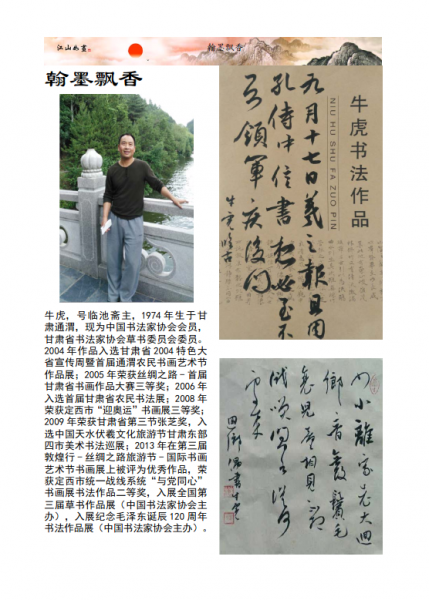 江山如画。
翰墨飘香
翰墨飘香
牛虎，号临池斋主，1974年生于甘
肃通渭，现为中国书法家协会会员，
甘肃省书法家协会草书委员会委员。
2004年作品入选甘肃省2004特色大
省宣传周暨首届通渭农民书画艺术节
作品展；2005年荣获丝绸之路-首届
甘肃省书画作品大赛三等奖；2006年
入选首届甘肃省农民书法展；2008年
荣获定西市“迎奥运”书画展三等奖；
2009年荣获甘肃省第三节张芝奖，入
选中国天水伏羲文化旅游节甘肃东部
四市美术书法巡展；2013年在第三届
敦煌行–丝绸之路旅游节–国际书画
艺术节书画展上被评为优秀作品，荣
获定西市统一战线系统“与党同心”
书画展书法作品二等奖，入展全国第
三届草书作品展（中国书法家协会主
办），入展纪念毛泽东诞辰120周年
书法作品展（中国书法家协会主办）。
牛虎书法作品
NIU HU SHU FA ZUO PIN
九月十七日羲之報且因
孔侍中信書想必至不
知領軍疾後問
小離家老大迴
鄉音鬢毛
相見
問